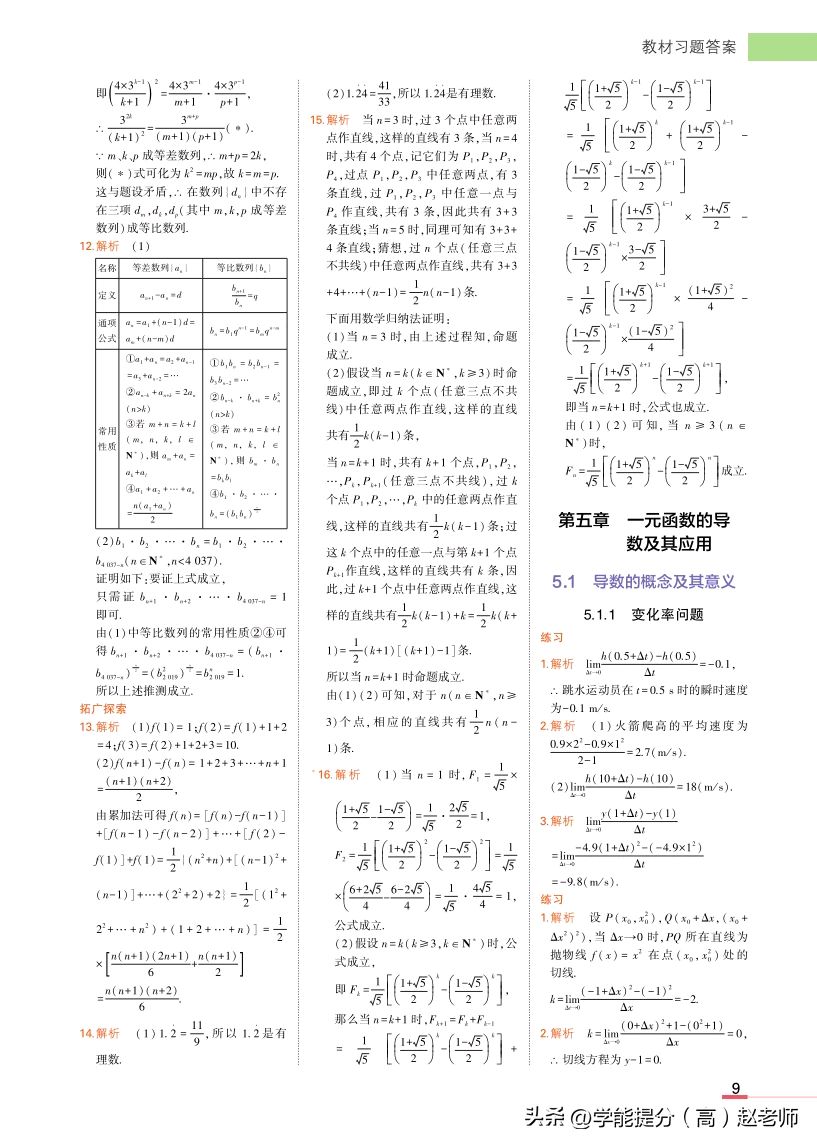 教材习题答案
即(4×3^{k-1}/(k+1))^2=4×3^{m-1}/(m+1)·4×3^{p-1}/(p+1),
∴ 3^{2k}/(k+1)^2=3^{m+p}/((m+1)(p+1))(*).
∵ m、k、p 成等差数列,∴ m+p=2k,
则(*)式可化为 k^2=mp,故 k=m=p.
这与题设矛盾,∴ 在数列{d_n}中不存
在三项 d_m,d_k,d_p(其中 m,k,p 成等差
数列)成等比数列.
12.解析 (1)
名称 等差数列{a_n} 等比数列{b_n}
定义 a_{n+1}-a_n=d b_{n+1}/b_n=q
通项公式 a_n=a_1+(n-1)d=a_m+(n-m)d b_n=b_1q^{n-1}=b_mq^{n-m}
常用性质
①a_1+a_n=a_2+a_{n-1}
=a_3+a_{n-2}=…
②a_{n-k}+a_{n+k}=2a_n
(n>k)
③若 m+n=k+l
(m, n, k, l ∈
N*),则 a_m+a_n=
a_k+a_l
④a_1+a_2+…+a_n
=n(a_1+a_n)/2
①b_1b_n=b_2b_{n-1}=
b_3b_{n-2}=…
②b_{n-k}·b_{n+k}=b_n^2
(n>k)
③若 m+n=k+l
(m, n, k, l ∈
N*),则 b_m·b_n
=b_kb_l
④b_1·b_2·…·
b_n=(b_1b_n)^{n/2}
(2)b_1·b_2·…·b_n=b_1·b_2·…·
b_{4 037-n}(n∈N*,n<4 037).
证明如下:要证上式成立,
只需证 b_{n+1}·b_{n+2}·…·b_{4 037-n}=1
即可.
由(1)中等比数列的常用性质②④可
得 b_{n+1}·b_{n+2}·…·b_{4 037-n}=(b_{n+1}·
所以上述推测成立.
拓广探索
13.解析 (1)f(1)=1;f(2)=f(1)+1+2
=4;f(3)=f(2)+1+2+3=10.
(2)f(n+1)-f(n)=1+2+3+…+n+1
=(n+1)(n+2)/2,
由累加法可得 f(n)=[f(n)-f(n-1)]
+[f(n-1)-f(n-2)]+…+[f(2)-
f(1)]+f(1)=1/2{(n^2+n)+[(n-1)^2+
(n-1)]+…+(2^2+2)+2}=1/2[(1^2+
2^2+…+n^2)+(1+2+…+n)]=1/2
×[n(n+1)(2n+1)/6+n(n+1)/2]
=n(n+1)(n+2)/6.
14.解析 (1)1.2̇=11/9,所以 1.2̇是有
理数.
(2)1.2̇4̇=41/33,所以 1.2̇4̇是有理数.
15.解析 当 n=3 时,过 3 个点中任意两
点作直线,这样的直线有 3 条,当 n=4
时,共有 4 个点,记它们为 P_1,P_2,P_3,
P_4,过点 P_1,P_2,P_3 中任意两点,有 3
条直线,过 P_1,P_2,P_3 中任意一点与
P_4 作直线,共有 3 条,因此共有 3+3
条直线;当 n=5 时,同理可知有 3+3+
4 条直线;猜想,过 n 个点(任意三点
不共线)中任意两点作直线,共有 3+3
+4+…+(n-1)=1/2n(n-1)条.
下面用数学归纳法证明:
(1)当 n=3 时,由上述过程知,命题
成立.
(2)假设当 n=k(k∈N*,k≥3)时命
题成立,即过 k 个点(任意三点不共
线)中任意两点作直线,这样的直线
共有1/2k(k-1)条,
当 n=k+1 时,共有 k+1 个点,P_1,P_2,
…,P_k,P_{k+1}(任意三点不共线),过 k
个点 P_1,P_2,…,P_k 中的任意两点作直
线,这样的直线共有1/2k(k-1)条;过
这 k 个点中的任意一点与第 k+1 个点
P_{k+1}作直线,这样的直线共有 k 条,因
此,过 k+1 个点中任意两点作直线,这
样的直线共有1/2k(k-1)+k=1/2k(k+
1)=1/2(k+1)[(k+1)-1]条.
所以当 n=k+1 时命题成立.
由(1)(2)可知,对于 n(n∈N*,n≥
3)个点,相应的直线共有1/2n(n-
1)条.
*16.解析 (1)当 n=1 时,F_1=1/√5×
((1+√5)/2-(1-√5)/2)=1/√5·2√5/2=1,
F_2=1/√5[((1+√5)/2)^2-((1-√5)/2)^2]=1/√5
×((6+2√5)/4-(6-2√5)/4)=1/√5·4√5/4=1,
公式成立.
(2)假设 n=k(k≥3,k∈N*)时,公
式成立,
即 F_k=1/√5[((1+√5)/2)^k-((1-√5)/2)^k],
那么当 n=k+1 时,F_{k+1}=F_k+F_{k-1}
=1/√5[((1+√5)/2)^k-((1-√5)/2)^k]+
1/√5[((1+√5)/2)^{k-1}-((1-√5)/2)^{k-1}]
=1/√5[((1+√5)/2)^k+((1+√5)/2)^{k-1}-
((1-√5)/2)^k-((1-√5)/2)^{k-1}]
=1/√5[((1+√5)/2)^{k-1}×(3+√5)/2-
((1-√5)/2)^{k-1}×(3-√5)/2]
=1/√5[((1+√5)/2)^{k-1}×(1+√5)^2/4-
((1-√5)/2)^{k-1}×(1-√5)^2/4]
=1/√5[((1+√5)/2)^{k+1}-((1-√5)/2)^{k+1}],
即当 n=k+1 时,公式也成立.
由(1)(2)可知,当 n≥3(n∈
N*)时,
F_n=1/√5[((1+√5)/2)^n-((1-√5)/2)^n]成立.
第五章 一元函数的导
数及其应用
5.1 导数的概念及其意义
5.1.1 变化率问题
练习
1.解析 lim_{Δt→0}(h(0.5+Δt)-h(0.5))/Δt=-0.1,
∴ 跳水运动员在 t=0.5 s 时的瞬时速度
为-0.1 m/s.
2.解析 (1)火箭爬高的平均速度为
(0.9×2^2-0.9×1^2)/(2-1)=2.7(m/s).
(2)lim_{Δt→0}(h(10+Δt)-h(10))/Δt=18(m/s).
3.解析 lim_{Δt→0}(y(1+Δt)-y(1))/Δt
=lim_{Δt→0}(-4.9(1+Δt)^2-(-4.9×1^2))/Δt
=-9.8(m/s).
练习
1.解析 设 P(x_0,x_0^2),Q(x_0+Δx,(x_0+
Δx^2)^2),当 Δx→0 时,PQ 所在直线为
抛物线 f(x)=x^2 在点(x_0,x_0^2)处的
切线.
k=lim_{Δx→0}((-1+Δx)^2-(-1)^2)/Δx=-2.
2.解析 k=lim_{Δx→0}((0+Δx)^2+1-(0^2+1))/Δx=0,
∴ 切线方程为 y-1=0.
9
头条 @学能提分(高)赵老师